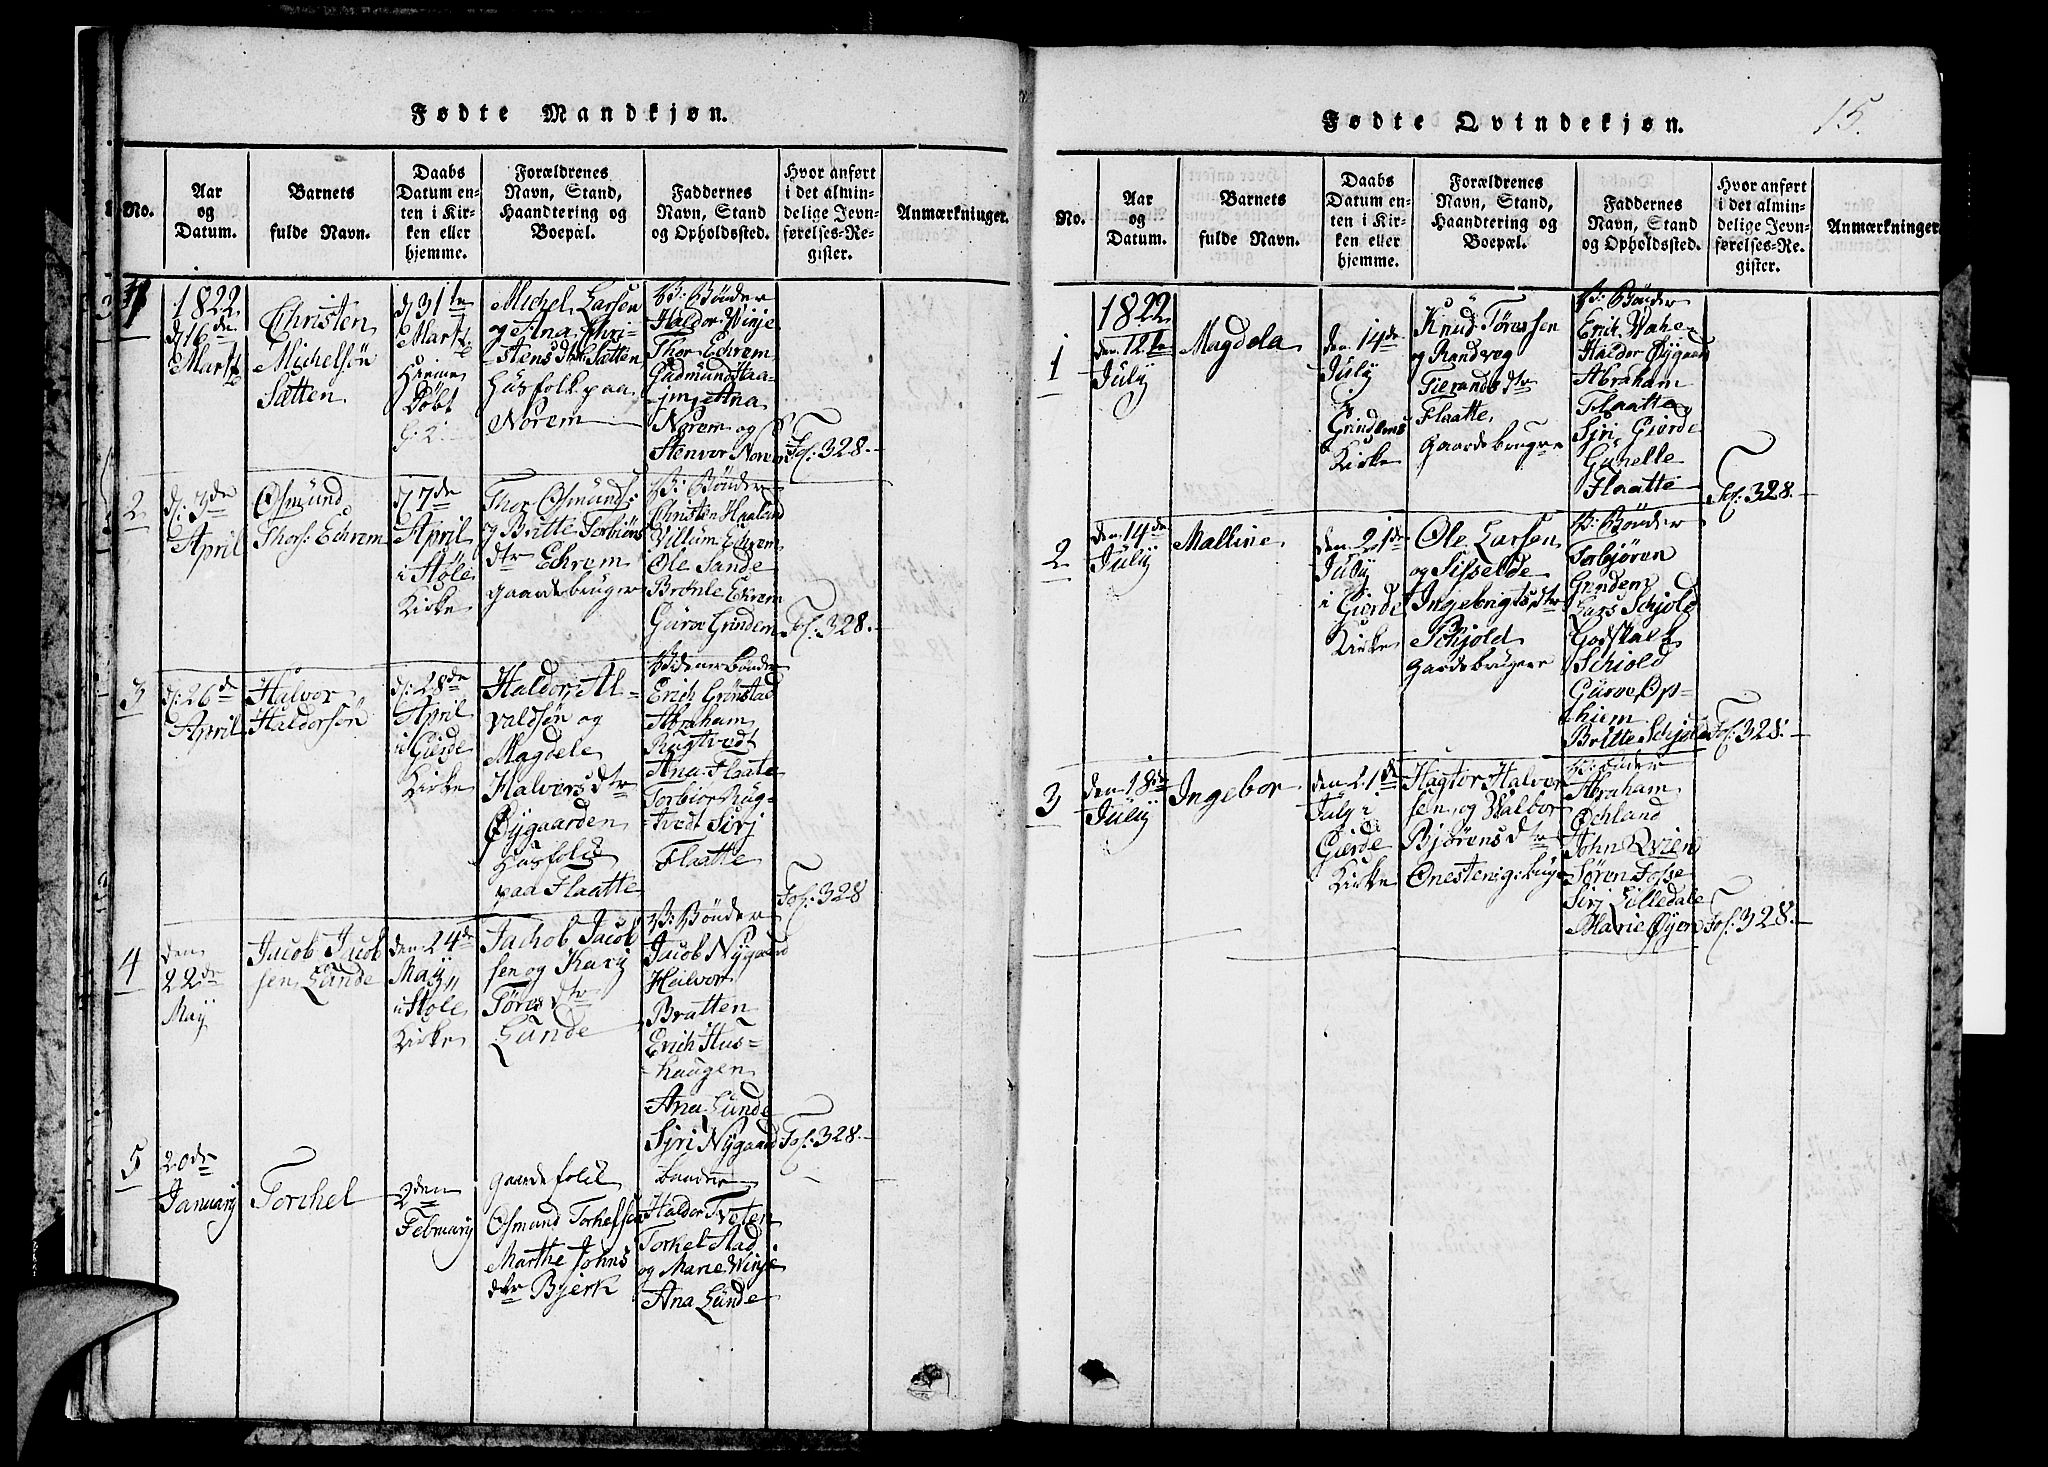 Fødte Mandkjøn.
No.
Aar
og
Datum.
Barnets
fulde Navn.
Daabs
Datum en-
ten i Kir-
ken eller
hjemme.
Forældrenes
Navn, Stand,
Haandtering og
Boepæl.
Faddernes
Navn, Stand
og Opholdssted.
Hvor anført
i det almin-
delige Jevn-
førelses-Re-
gister.
Anmærkninger.
1822
d 16de
Marts
Christen
Michelsøn
Sætten
d 31te
Marts
Hiemme
Døbt
Michel Larsen
og Ana Chri-
stens dtr Sætten
Huusfolk paa
Norem
Bønder
Haldor Winje
Thor Echrem
Gudmund Haa-
Ana
Norem og
Stenvor Norem
Fol: 328.
2
d: 3de
April
Osmund
Thors: Echrem
d 7de
April
i Støle
Kirke
Thor Osmunds:
og Britte Torbiøns
dtr Echrem
gaardsbruger
B: Bønder
Christen Haaland
Villum Echrem
Ole Sande
Bronle Echrem
Gurve Grindem
Fol: 328.
3
d: 26de
April
Halvor
Haldorsøn
d: 28de
April
i Gierde
Kirke
Haldor Al-
valdsøn og
Magdele
Halvors dtr
Øygaarden
Husfolk
paa Flaatte
bønder
Erich Grønstad
Abraham
Rugtvedt
Ana Flaate
Torbior Rug-
tvedt Sirj
Flaatte
Fol: 328
4
den
22de
May
Jacob Jacob
sen Lunde
den 24de
May
i Støle
Kirke
Jachob Jacob
sen og Kary
Tøres dtr
Lunde
B: Bønder
Jacob Nygaard
Halvor
Bratten
Erich Hus-
haugen
Ana Lunde
Sjri Nygaard
Fol: 328.
5
20de
January
Torchel
2den
February
gaardsfolk
Osmund Torkelsen
Marthe Johns
dtr Bjerk
bønder
Haldor Tveten
Torkel Stad
og Marie Winje
Ana Lunde
15.
Fødte Qvindekjøn.
No.
Aar
og
Datum.
Barnets
fulde Navn.
Daabs
Datum en-
ten i Kir-
ken eller
hjemme.
Forældrenes
Navn, Stand,
Haandtering og
Boepæl.
Faddernes
Navn, Stand
og Opholdssted.
Hvor anført
i det almin-
delige Jevn-
førelses-Re-
gister.
Anmærkninger.
1
1822
den 12te
July
Magdela
den 14de
July
i
Grindems
Kirke
Knud Toressen
og Randveg
Tierands dtr
Flaatte
Gaardsbrugere
B: Bønder
Erich Vahe
Haldor Øygaard
Abraham
Flaatte
Sjri Gierde
Gunelle
Flaatte
Fol: 328.
2
den 14de
July
Malline
den 21de
July
i Gierde
Kirke
Ole Larsen
og Sisselde
Ingebrigts dtr
Schjold
Gardsbrugere
B: Bønder
Torbjøren
Grindem
Lars Schjold
Godskalk
Schiold
Gurve Op-
hiem
Britte Schjold
Fol: 328.
3
den 18de
July
Ingebor
den 21de
July i
Gierde
Kirke
Hagtor Halvor
sen og Valbor
Bjørens dtr
Onesteng: bruge
B: Bønder
Abraham
Ochland
John Qvien
Søren Fosse
Sirj Lolledale
Marie Øyere
Fol: 328.